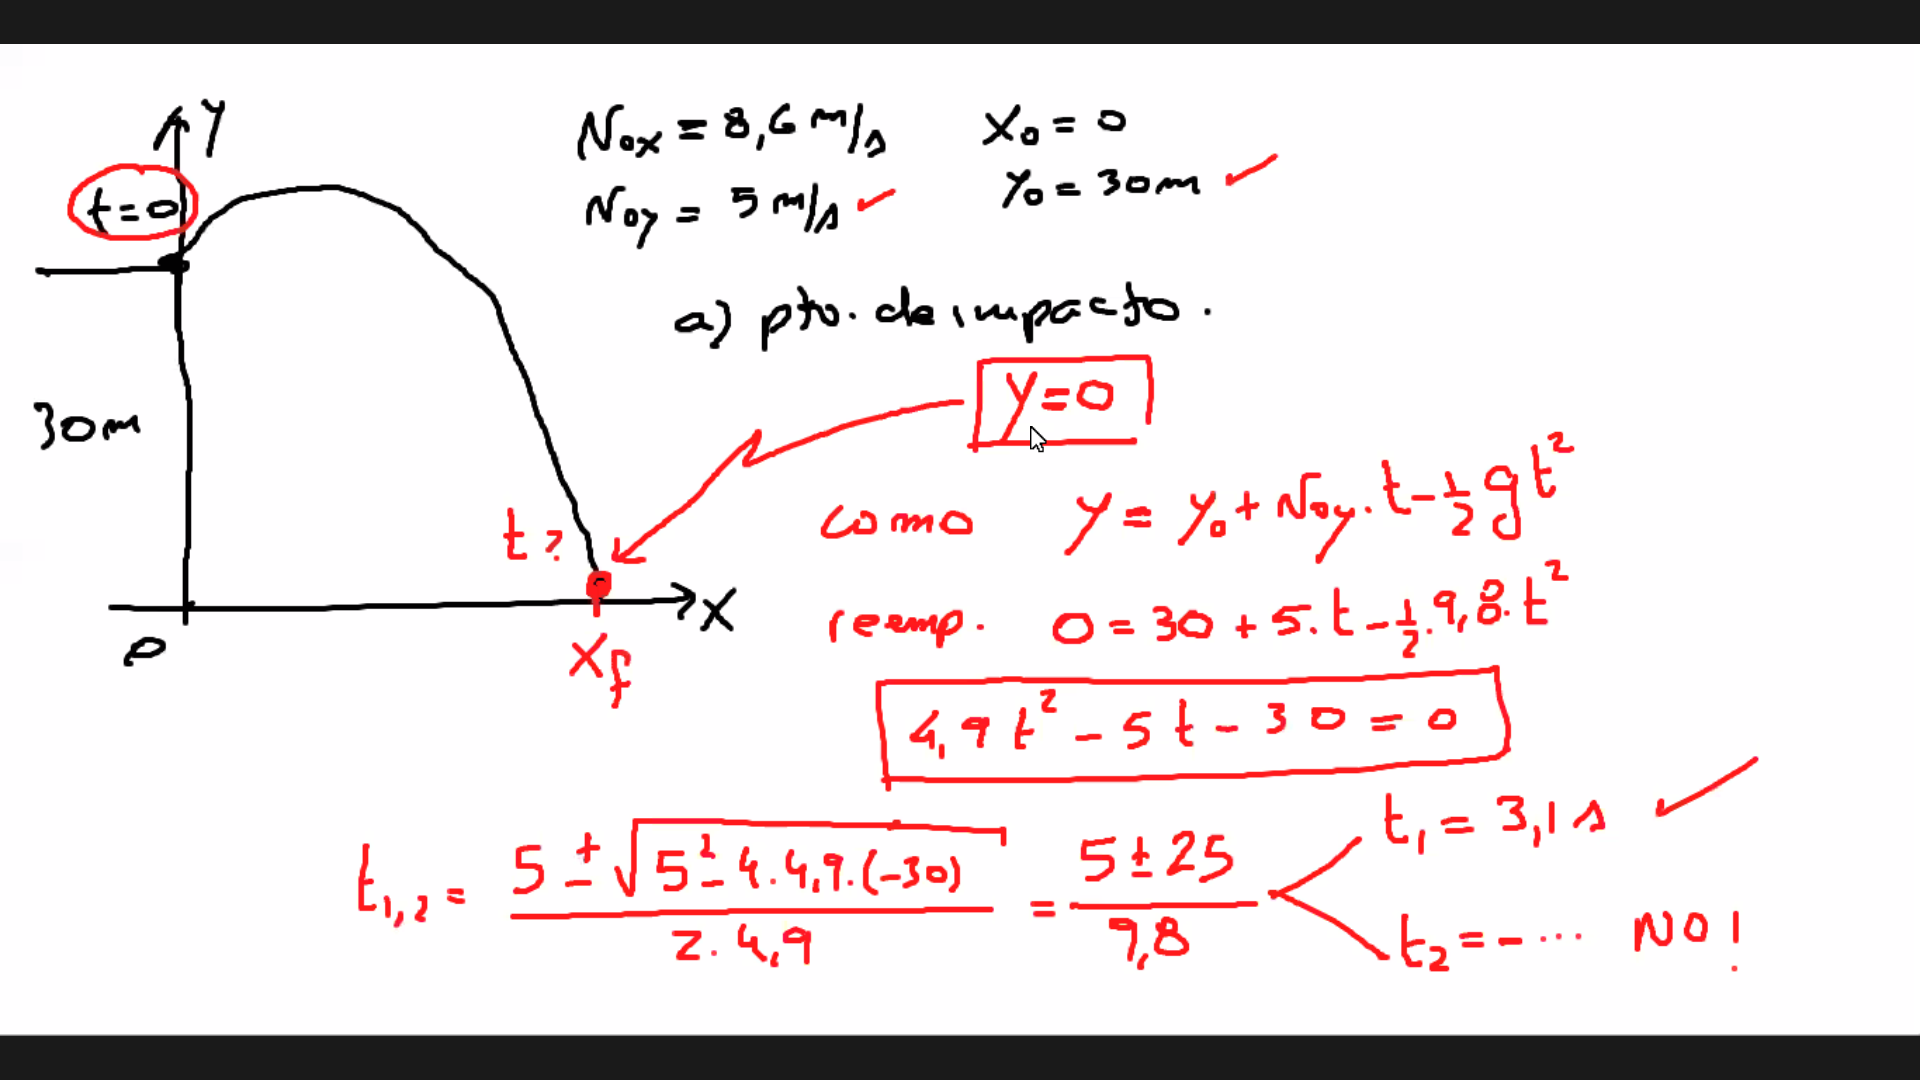 Y
t=0
30m
O
X
t?
Xf
Vox = 8,6 m/s
Voy = 5 m/s
X₀ = 0
Y₀ = 30m
a) pto. de impacto.
Y=0
como y = y₀ + Voy.t - 1/2 gt²
reemp. 0 = 30 + 5.t - 1/2.9,8.t²
4,9t² - 5t - 30 = 0
t₁,₂ = (5 ± √(5² - 4.4,9.(-30))) / (2.4,9) = (5 ± 25) / 9,8
t₁ = 3,1 s
t₂ = - ... NO!